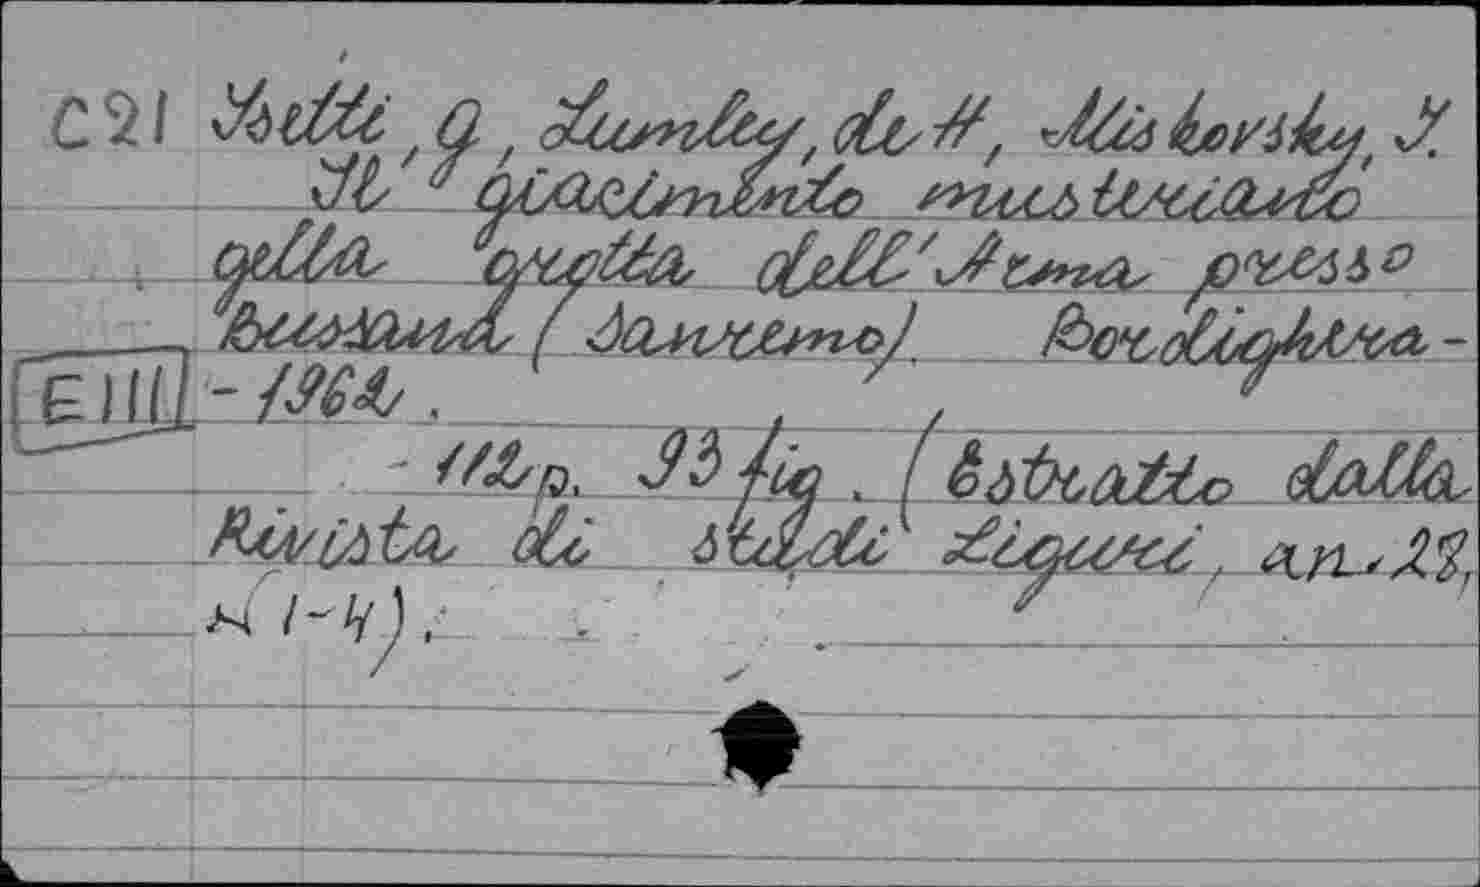 C21 Isetti, G, Lumley, de H, Miskovsky, J.
Il giacimento musteriano
della grotta dell'Arma presso
Bussana (Sanremo). Bordighera -
EIII - 1962.
- 112p. 93 fig. (Estratto dalla
Rivista di studi Liguri, an. 28,
N 1-4).